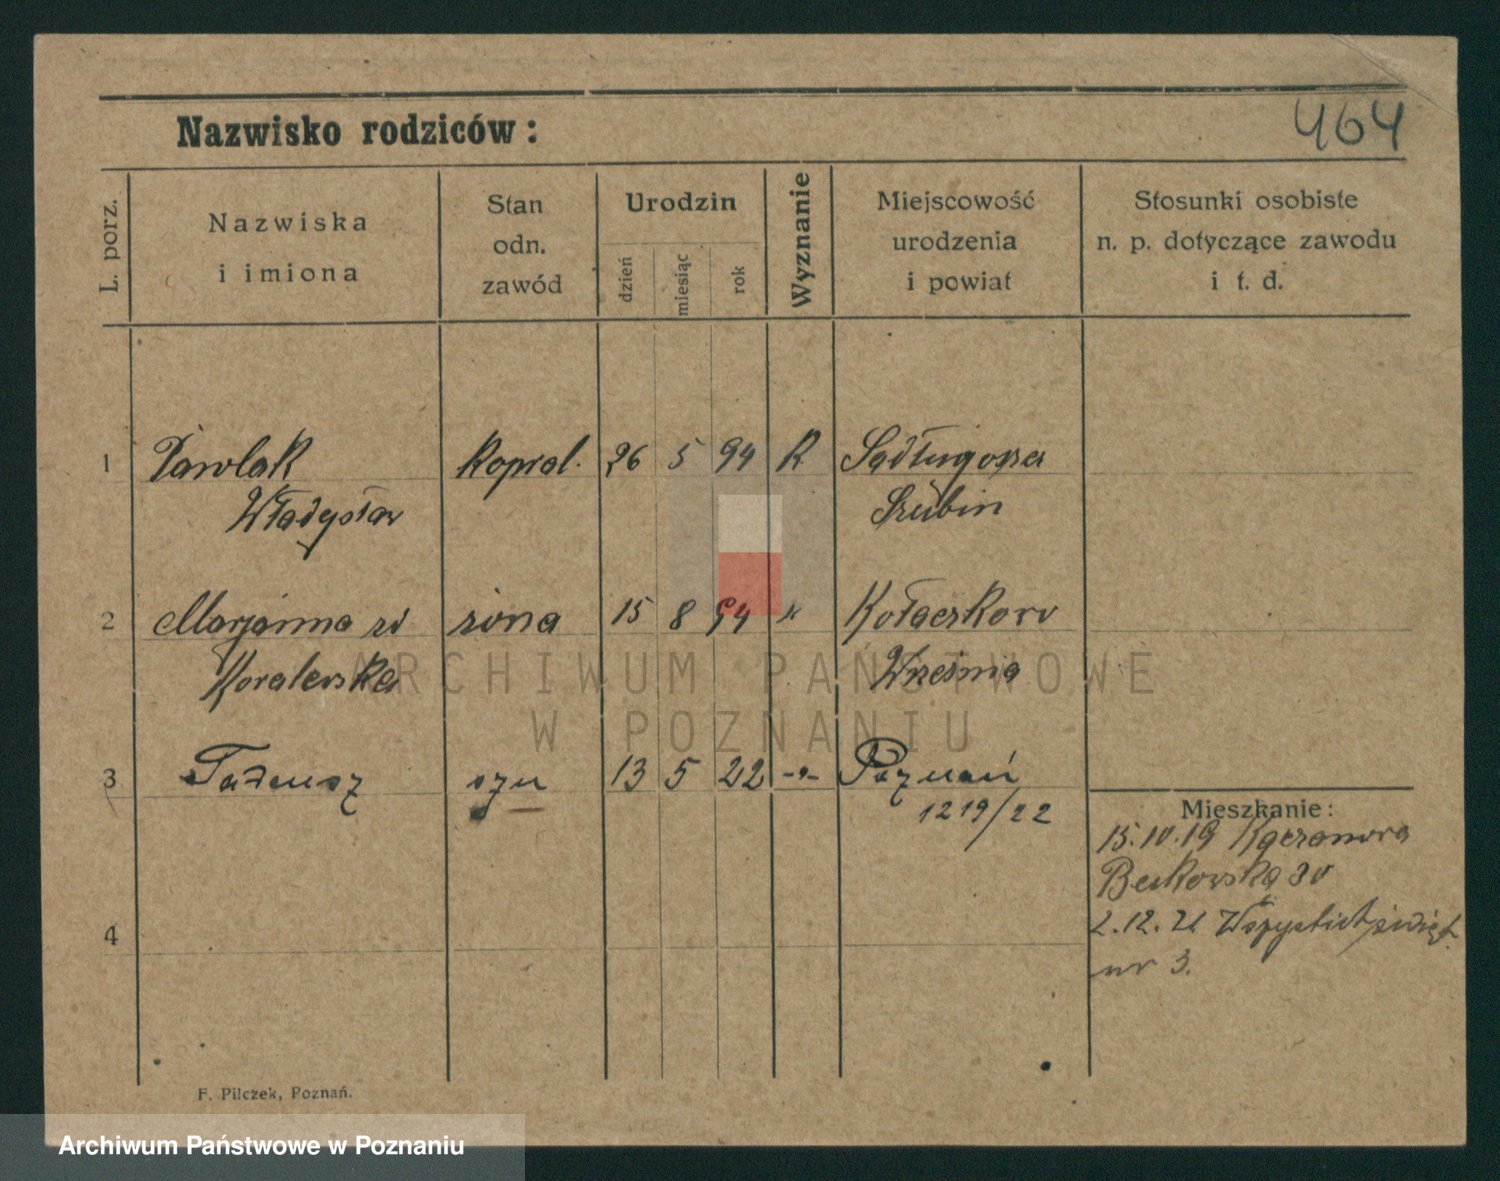 Nazwisko rodziców:
464
L. porz.
Nazwiska
i imiona
Stan
odn.
zawód
Urodzin
dzień
miesiąc
rok
Wyznanie
Miejscowość
urodzenia
i powiat
Stosunki osobiste
n. p. dotyczące zawodu
i t. d.
1 Pawlak kopral. 26 5 94 K
Władysław Szubin
2 Marjanna zd żona 15 8 94 K Kołaczkowo
Kowalewska Września
3 Tadeusz syn 13 5 22 -"- Poznań
1219/22
Mieszkanie:
15.10.19
30
4
2.12.21 Wszystkich święt.
nr 3.
F. Pilczek, Poznań.
ARCHIWUM PAŃSTWOWE
W POZNANIU
Archiwum Państwowe w Poznaniu